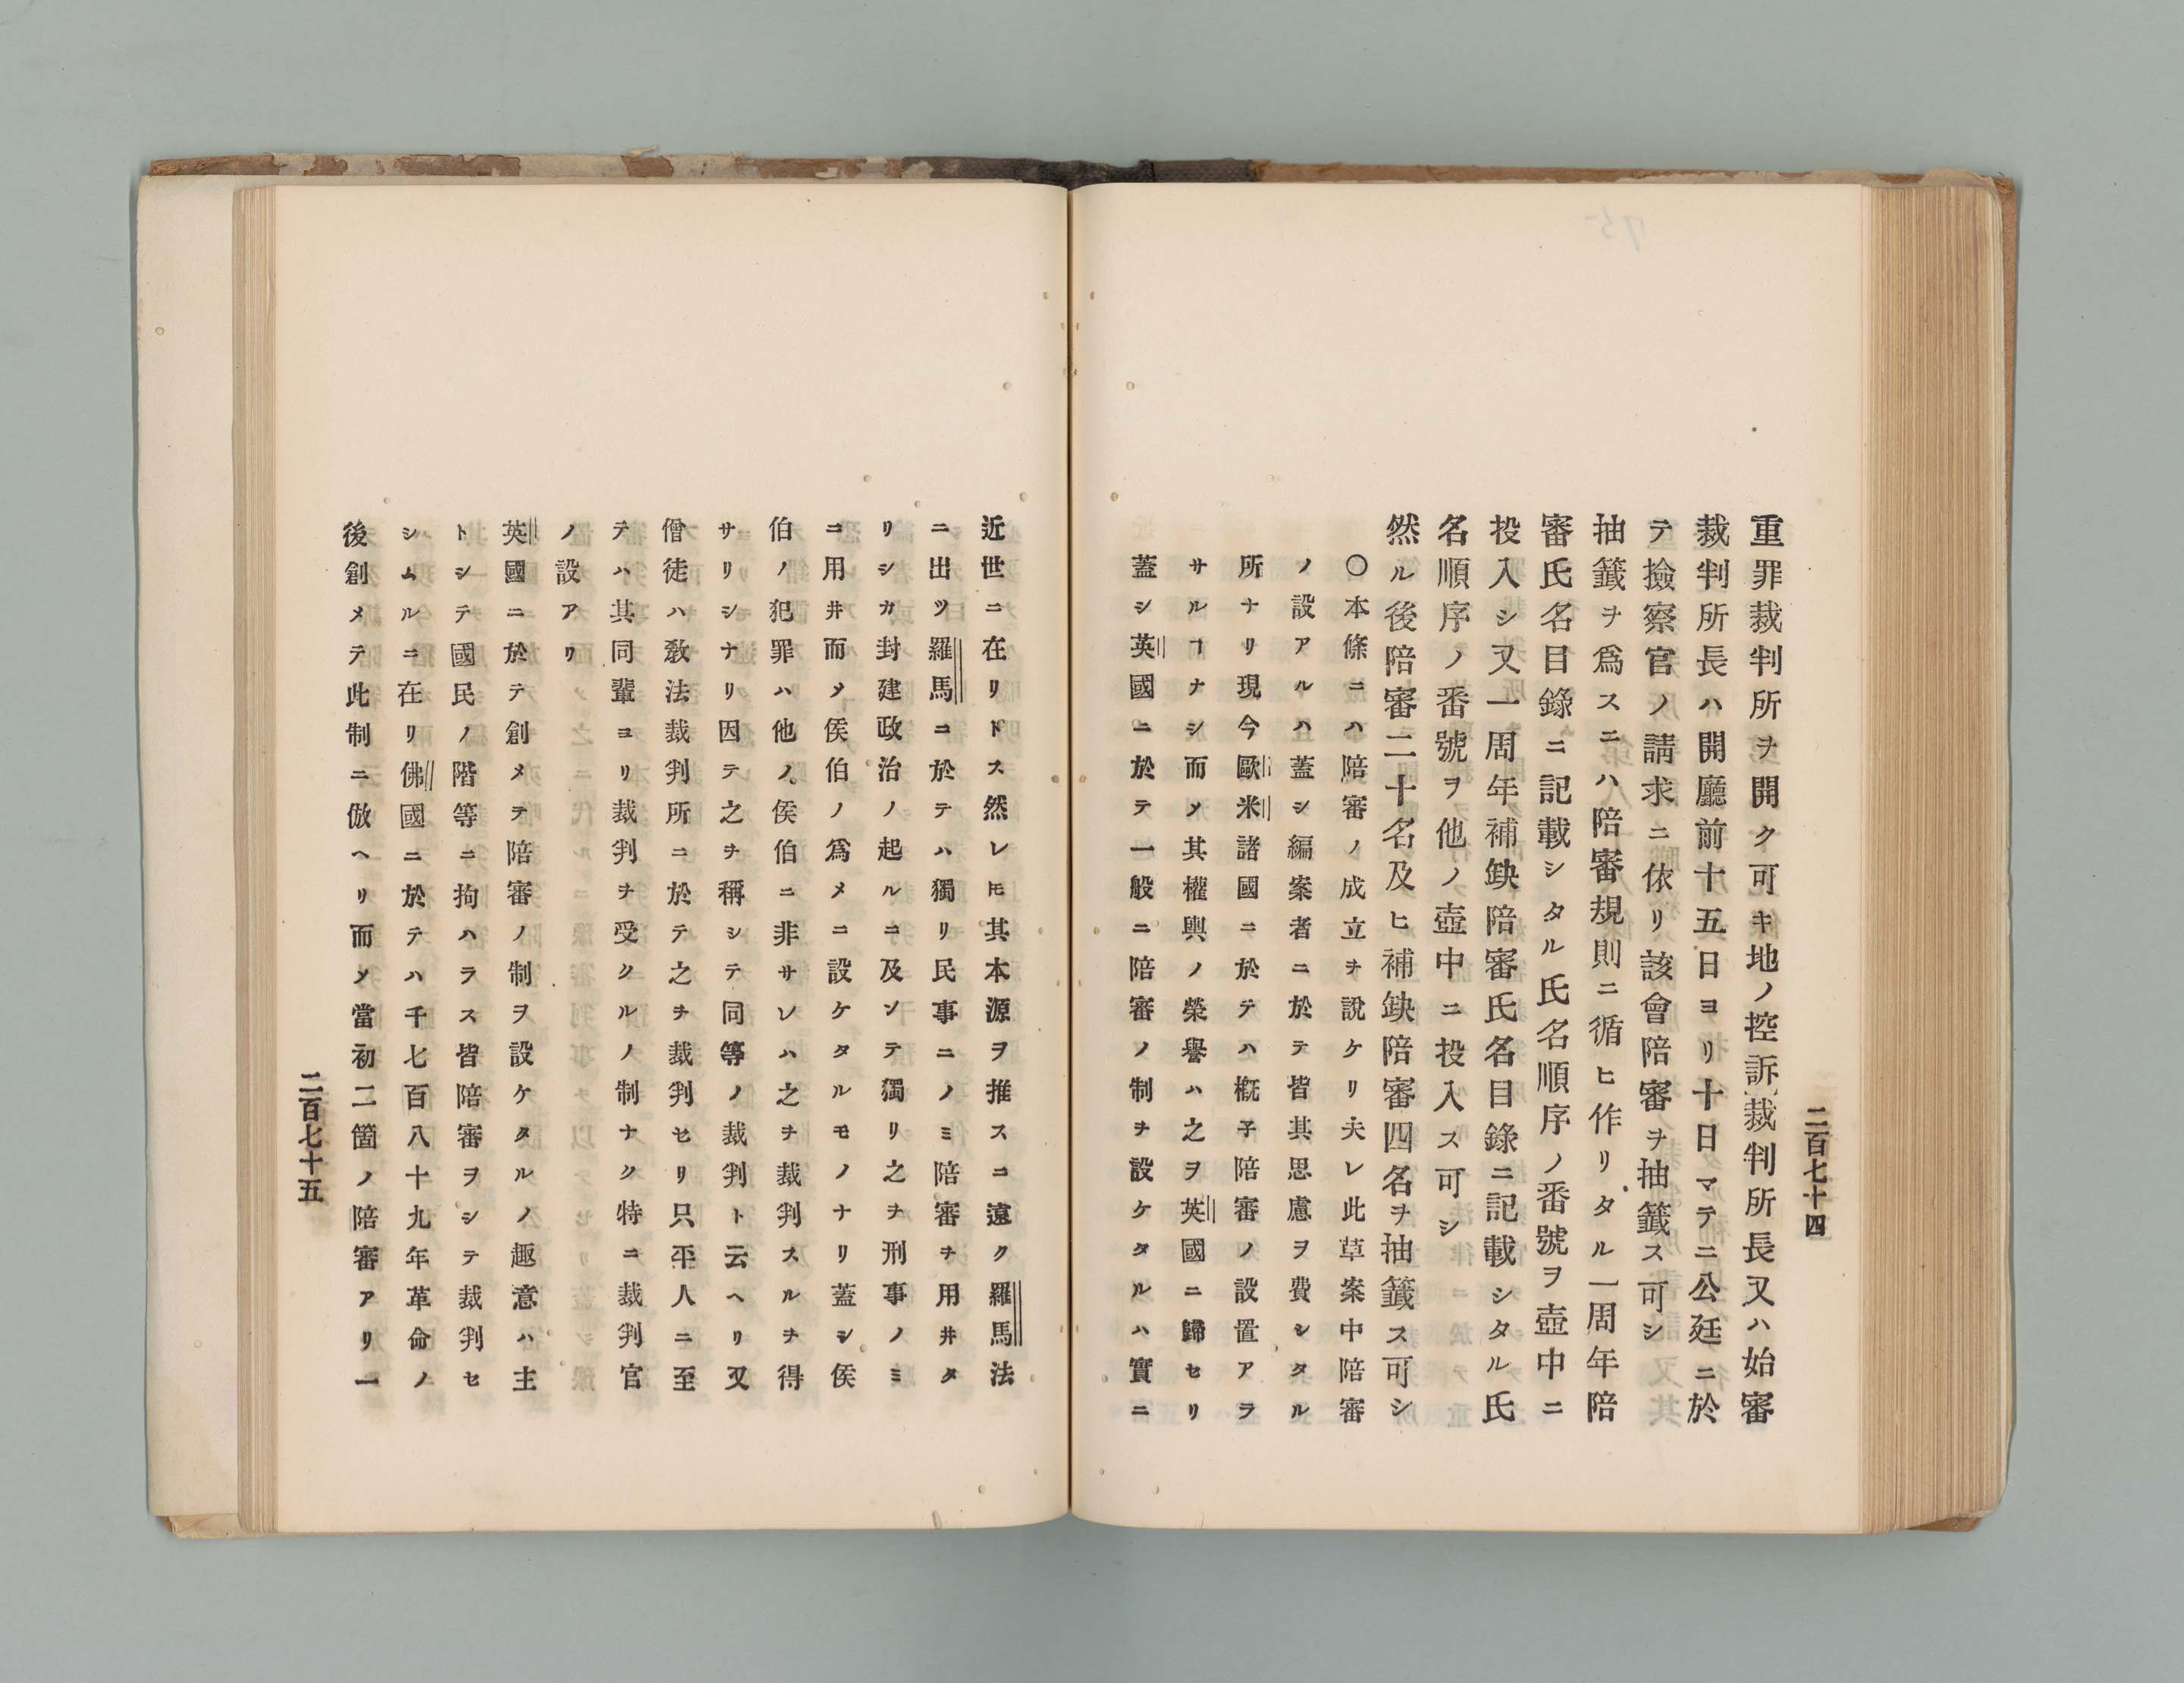 二百七十四
重罪裁判所ヲ開ク可キ地ノ控訴裁判所長又ハ始審
裁判所長ハ開廳前十五日ヨリ十日マテニ公廷ニ於
テ撿察官ノ請求ニ依リ該會陪審ヲ抽籤ス可シ
抽籤ヲ爲スニハ陪審規則ニ循ヒ作リタル一周年陪
審氏名目錄ニ記載シタル氏名順序ノ番號ヲ壺中ニ
投入シ又一周年補缺陪審氏名目錄ニ記載シタル氏
名順序ノ番號ヲ他ノ壺中ニ投入ス可シ
然ル後陪審二十名及ヒ補缺陪審四名ヲ抽籤ス可シ
〇本條ニハ陪審ノ成立ヲ說ケリ夫レ此草案中陪審
ノ設アルハ蓋シ編案者ニ於テ皆其思慮ヲ費シタル
所ナリ現今歐米諸國ニ於テハ槪子陪審ノ設置アラ
サルヿナシ而メ其權輿ノ榮譽ハ之ヲ英國ニ歸セリ
蓋シ英國ニ於テ一般ニ陪審ノ制ヲ設ケタルハ實ニ
近世ニ在リトス然レ𪜈其本源ヲ推スニ遠ク羅馬法
ニ出ツ羅馬ニ於テハ獨リ民事ニノミ陪審ヲ用井タ
リシカ封建政治ノ起ルニ及ンテ獨リ之ヲ刑事ノミ
ニ用井而メ侯伯ノ爲メニ設ケタルモノナリ蓋シ侯
伯ノ犯罪ハ他ノ侯伯ニ非サレハ之ヲ裁判スルヲ得
サリシナリ因テ之ヲ稱シテ同等ノ裁判ト云ヘリ又
僧徒ハ敎法裁判所ニ於テ之ヲ裁判セリ只平人ニ至
テハ其同輩ヨリ裁判ヲ受クルノ制ナク特ニ裁判官
ノ設アリ
英國ニ於テ創メテ陪審ノ制ヲ設ケタルノ趣意ハ主
トシテ國民ノ階等ニ拘ハラス皆陪審ヲシテ裁判セ
シムルニ在リ佛國ニ於テハ千七百八十九年革命ノ
後創メテ此制ニ倣ヘリ而メ當初二箇ノ陪審アリ一
二百七十五